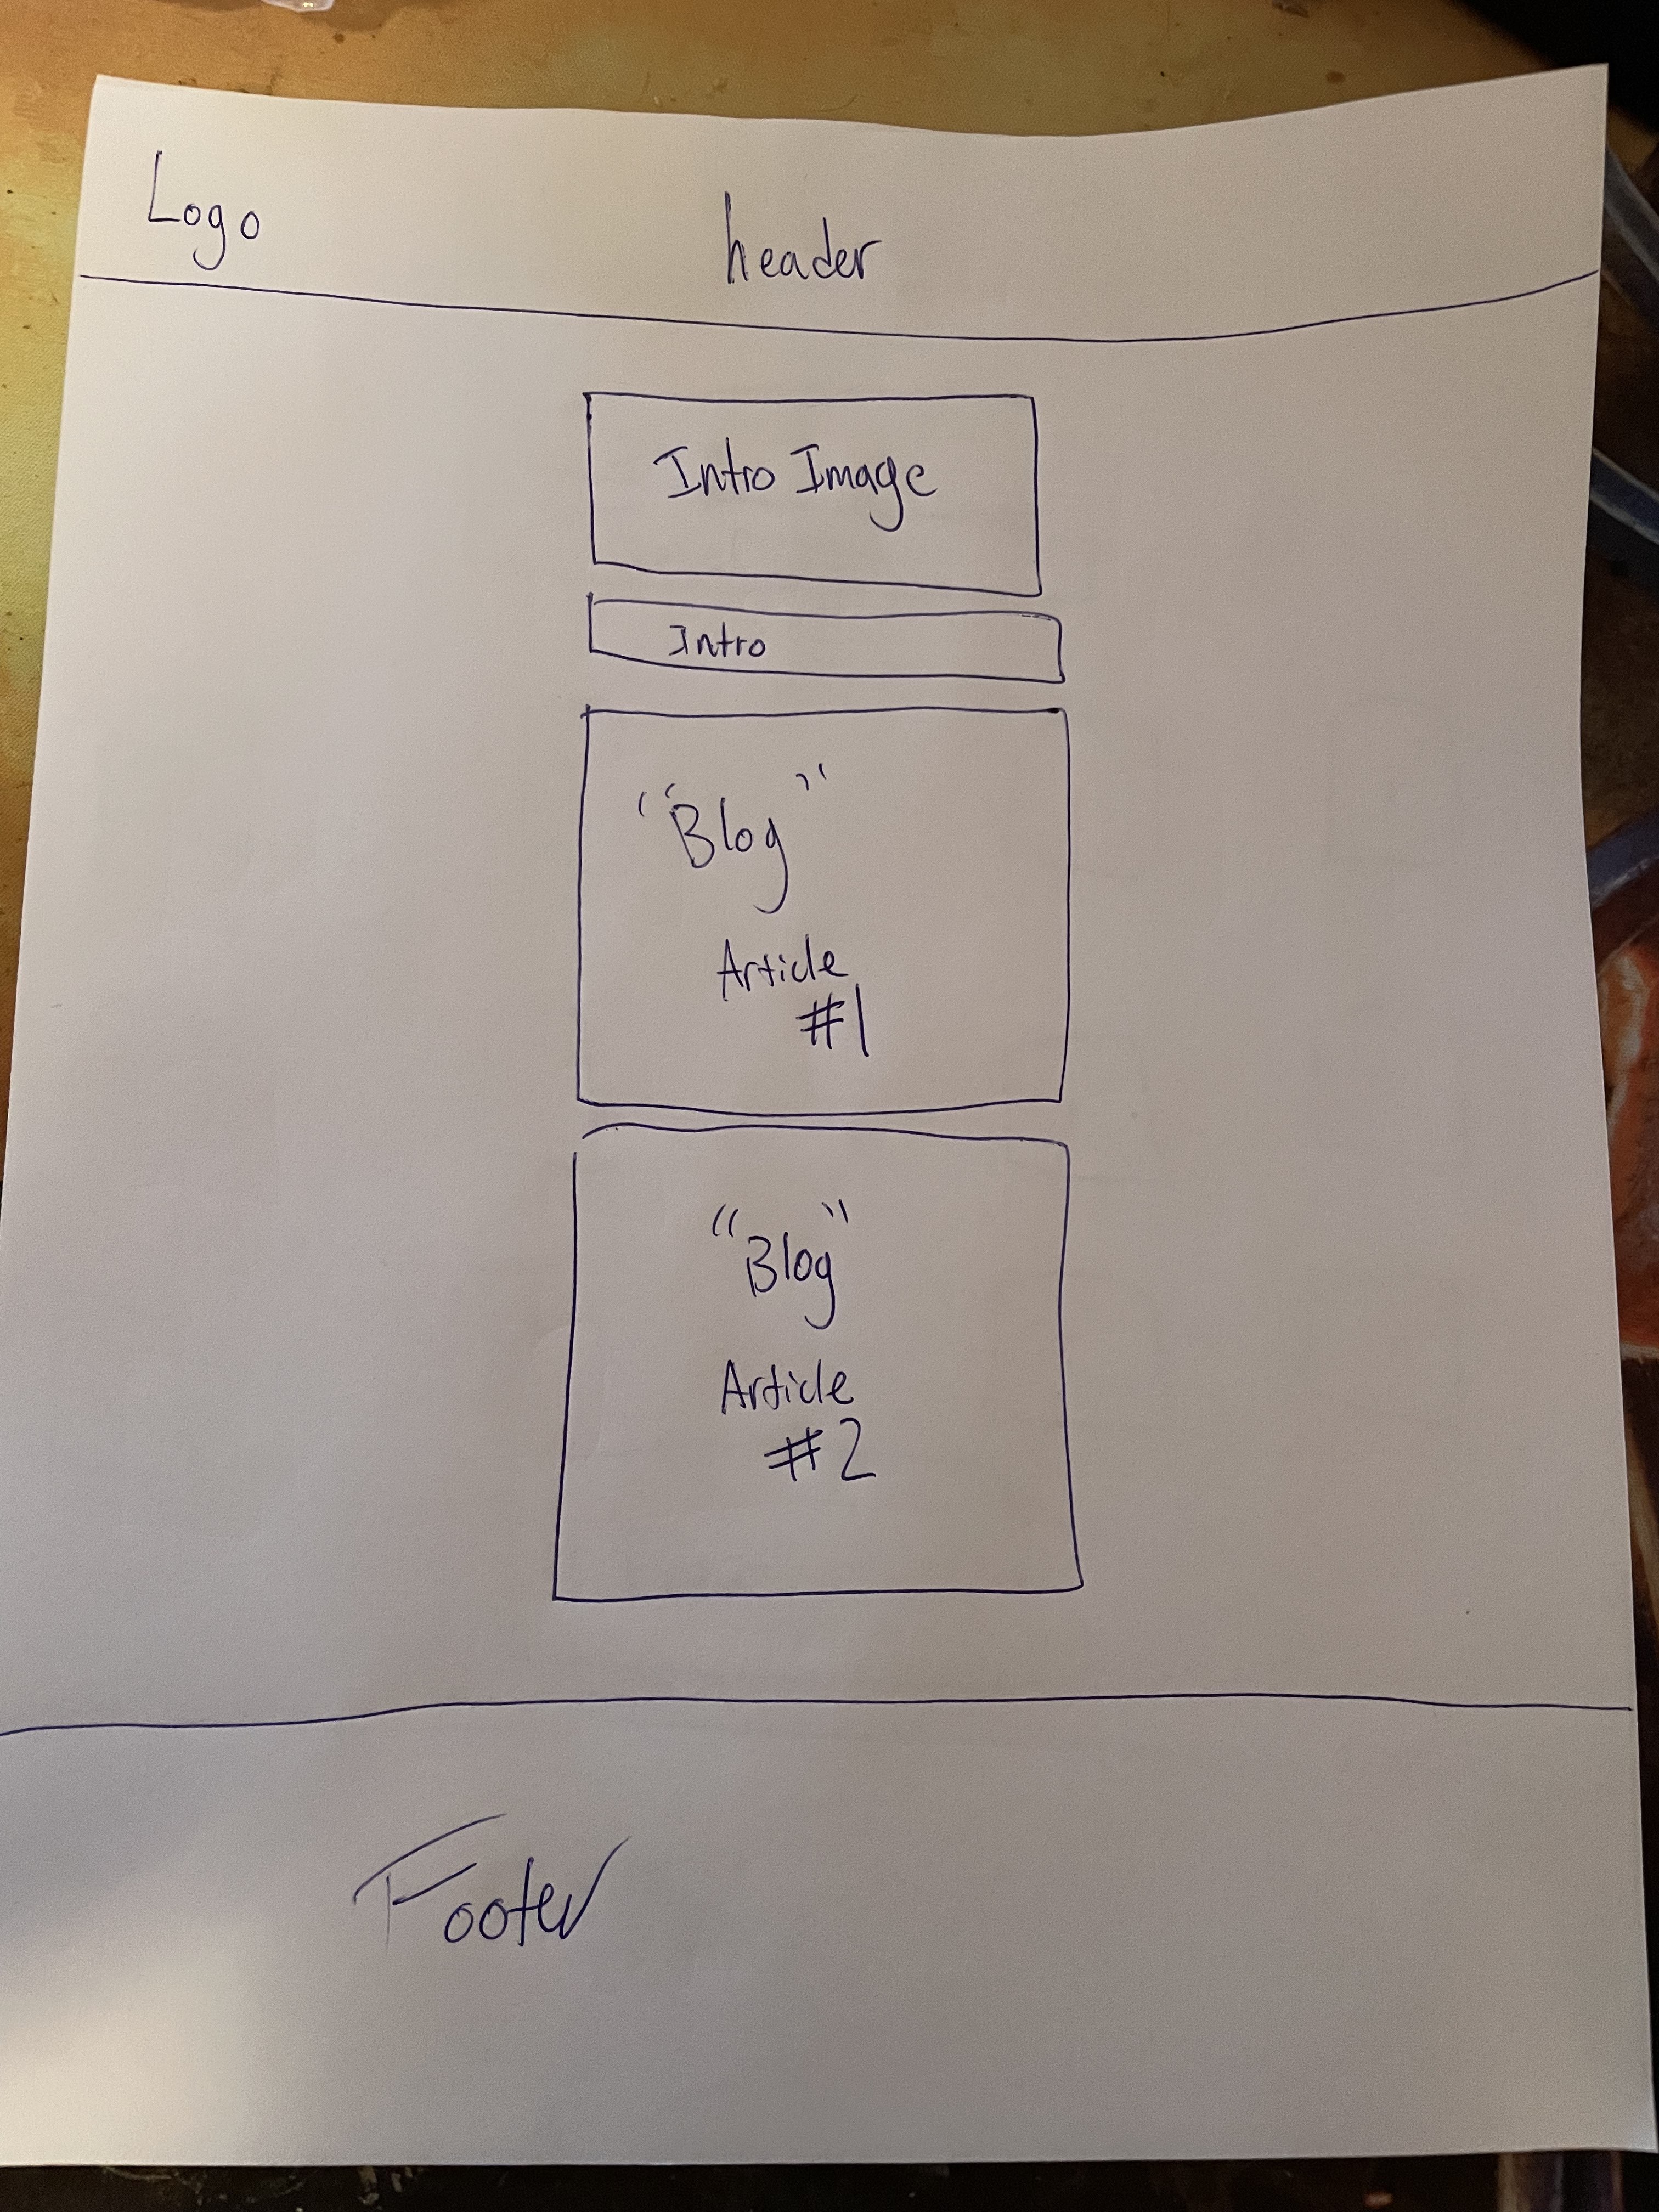 Logo
header
Intro Image
Intro
"Blog"
Article
#1
"Blog"
Article
#2
Footer